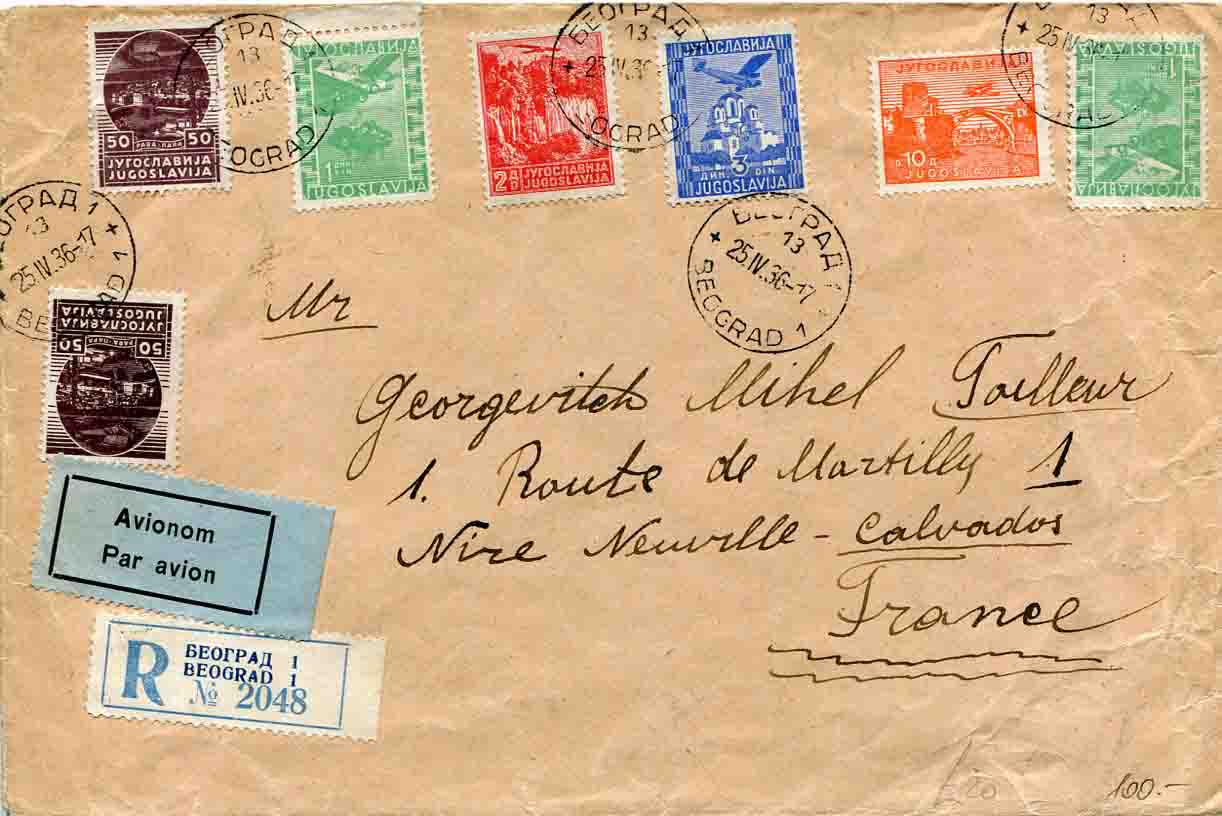 50 50
PARA-ПАРА
ЈУГОСЛАВИЈА
JUGOSLAVIJA
БЕОГРАД
13
25.IV.36-17
BEOGRAD
ЈУГОСЛАВИЈА
1 ДИН DIN
JUGOSLAVIJA
2 Д D
ЈУГОСЛАВИЈА
JUGOSLAVIJA
БЕОГРАД
13
25.IV.36-
BEOGRAD
ЈУГОСЛАВИЈА
3
ДИН DIN
JUGOSLAVIJA
ЈУГОСЛАВИЈА
10
JUGOSLAVIJA
13
25.IV.36-17
BEOGRAD
ЈУГОСЛАВИЈА
1
JUGOSLAVIJA
БЕОГРАД 1
13
25.IV.36-17
BEOGRAD 1
БЕОГРАД 1
13
25.IV.36-17
BEOGRAD 1
50 50
PARA-ПАРА
ЈУГОСЛАВИЈА
JUGOSLAVIJA
Mr
Georgevitch Mihel Tailleur
1. Route de Martilly 1
Vire Neuville - Calvados
France
Avionom
Par avion
R
БЕОГРАД 1
BEOGRAD 1
№ 2048
100.-